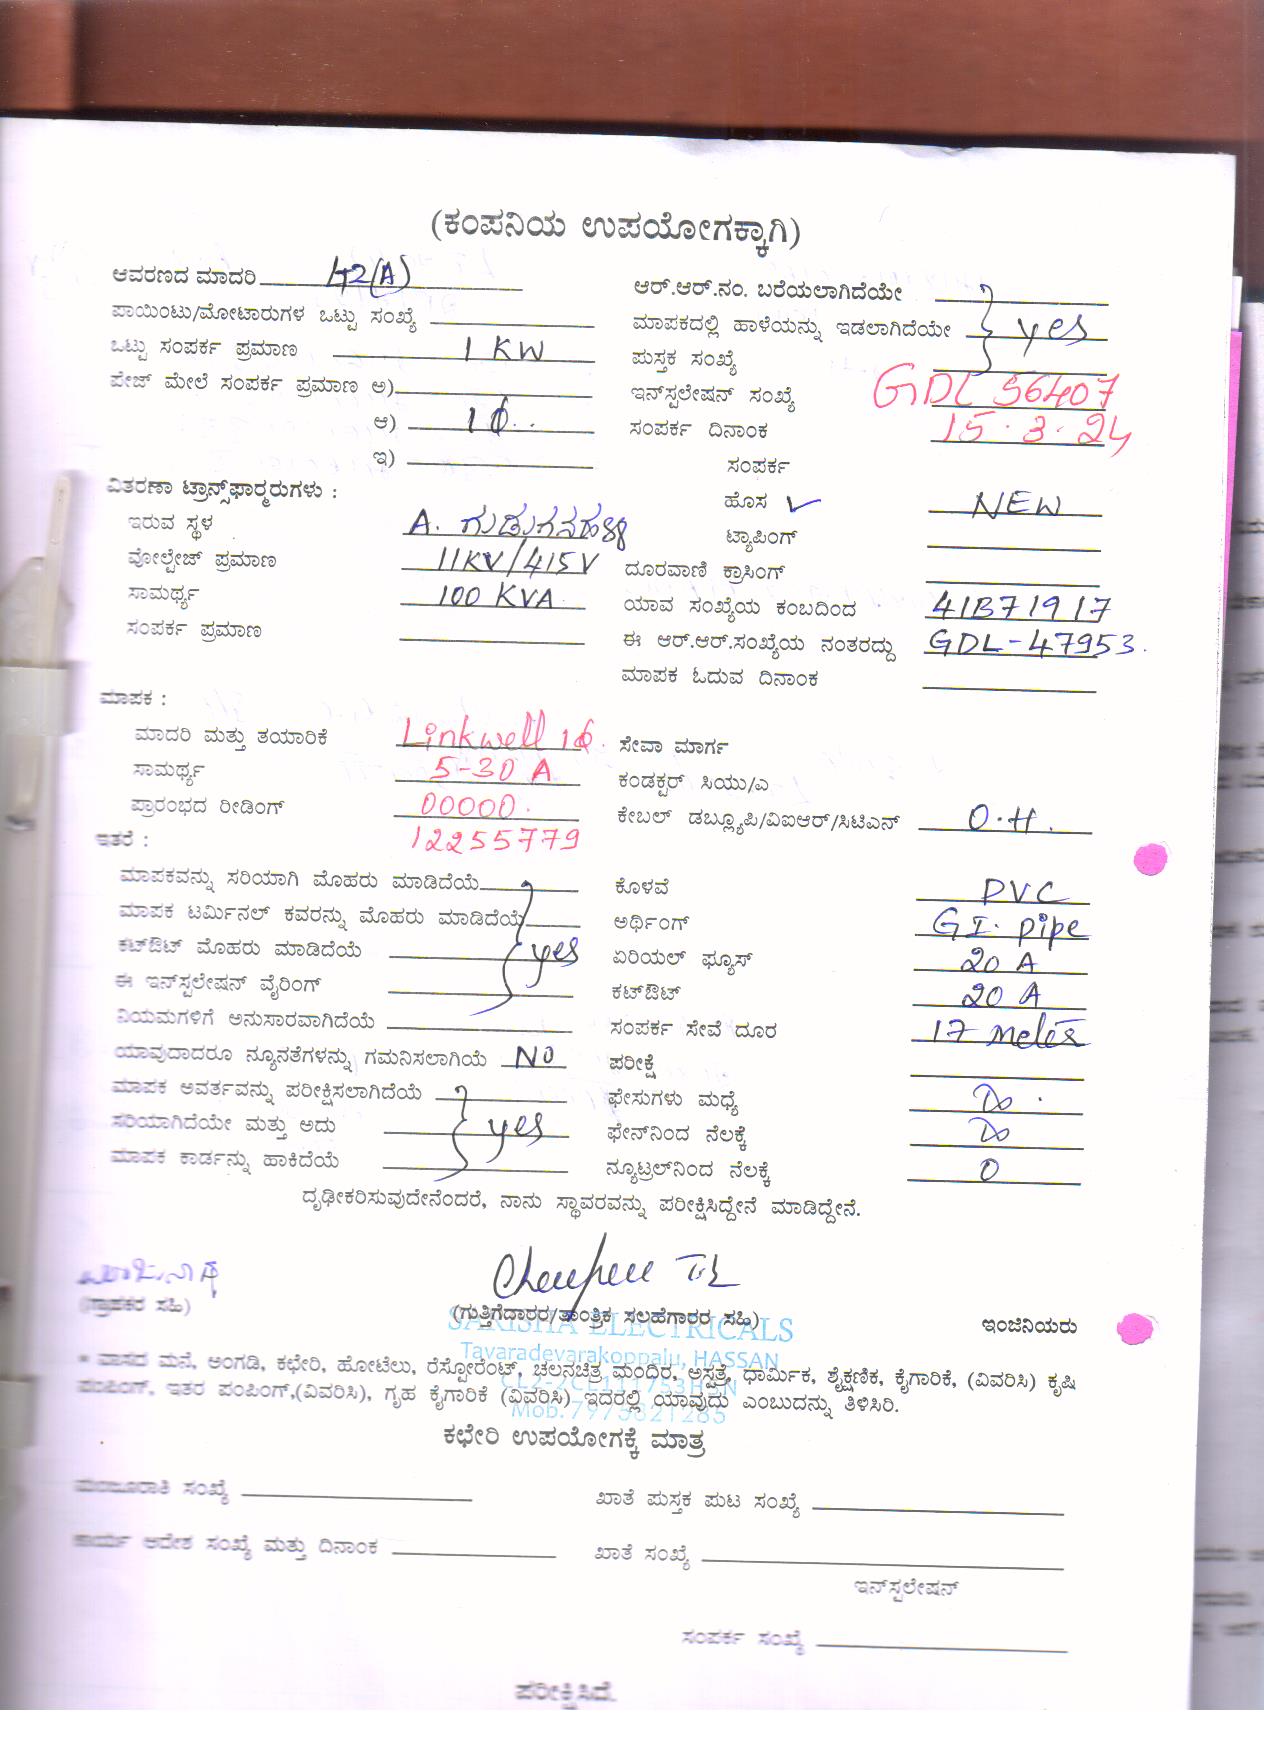 (ಕಂಪನಿಯ ಉಪಯೋಗಕ್ಕಾಗಿ)
ಆವರಣದ ಮಾದರಿ 42(A)
ಪಾಯಿಂಟು/ಮೋಟಾರುಗಳ ಒಟ್ಟು ಸಂಖ್ಯೆ
ಒಟ್ಟು ಸಂಪರ್ಕ ಪ್ರಮಾಣ 1 KW
ಪೇಜ್ ಮೇಲೆ ಸಂಪರ್ಕ ಪ್ರಮಾಣ ಅ)
ಆ) 1ϕ
ಇ)
ವಿತರಣಾ ಟ್ರಾನ್ಸ್‌ಫಾರ್‍ಮರುಗಳು :
ಇರುವ ಸ್ಥಳ A. ಗುಡುಗನಹಳ್ಳಿ
ವೋಲ್ಟೇಜ್ ಪ್ರಮಾಣ 11KV/415V
ಸಾಮರ್ಥ್ಯ 100 KVA
ಸಂಪರ್ಕ ಪ್ರಮಾಣ
ಮಾಪಕ :
ಮಾದರಿ ಮತ್ತು ತಯಾರಿಕೆ Linkwell 1ϕ.
ಸಾಮರ್ಥ್ಯ 5-30 A
ಪ್ರಾರಂಭದ ರೀಡಿಂಗ್ 00000.
ಇತರೆ : 12255779
ಮಾಪಕವನ್ನು ಸರಿಯಾಗಿ ಮೊಹರು ಮಾಡಿದೆಯೆ
ಮಾಪಕ ಟರ್ಮಿನಲ್ ಕವರನ್ನು ಮೊಹರು ಮಾಡಿದೆಯೆ
ಕಟ್‌ಔಟ್ ಮೊಹರು ಮಾಡಿದೆಯೆ yes
ಈ ಇನ್‌ಸ್ಟಲೇಷನ್ ವೈರಿಂಗ್
ನಿಯಮಗಳಿಗೆ ಅನುಸಾರವಾಗಿದೆಯೆ
ಯಾವುದಾದರೂ ನ್ಯೂನತೆಗಳನ್ನು ಗಮನಿಸಲಾಗಿಯೆ NO
ಮಾಪಕ ಅವರ್ತವನ್ನು ಪರೀಕ್ಷಿಸಲಾಗಿದೆಯೆ
ಸರಿಯಾಗಿದೆಯೇ ಮತ್ತು ಅದು yes
ಮಾಪಕ ಕಾರ್ಡನ್ನು ಹಾಕಿದೆಯೆ
ಆರ್.ಆರ್.ನಂ. ಬರೆಯಲಾಗಿದೆಯೇ
ಮಾಪಕದಲ್ಲಿ ಹಾಳೆಯನ್ನು ಇಡಲಾಗಿದೆಯೇ yes
ಪುಸ್ತಕ ಸಂಖ್ಯೆ
ಇನ್‌ಸ್ಟಲೇಷನ್ ಸಂಖ್ಯೆ GDL 56407
ಸಂಪರ್ಕ ದಿನಾಂಕ 15.3.24
ಸಂಪರ್ಕ
ಹೊಸ ✓ NEW
ಟ್ಯಾಪಿಂಗ್
ದೂರವಾಣಿ ಕ್ರಾಸಿಂಗ್
ಯಾವ ಸಂಖ್ಯೆಯ ಕಂಬದಿಂದ 41B71917
ಈ ಆರ್.ಆರ್.ಸಂಖ್ಯೆಯ ನಂತರದ್ದು GDL-47953.
ಮಾಪಕ ಓದುವ ದಿನಾಂಕ
ಸೇವಾ ಮಾರ್ಗ
ಕಂಡಕ್ಟರ್ ಸಿಯು/ಎ
ಕೇಬಲ್ ಡಬ್ಲ್ಯೂಪಿ/ವಿಐಆರ್/ಸಿಟಿಎನ್ O.H.
ಕೊಳವೆ PVC
ಅರ್ಥಿಂಗ್ GI. pipe
ಏರಿಯಲ್ ಫ್ಯೂಸ್ 20 A
ಕಟ್‌ಔಟ್ 20 A
ಸಂಪರ್ಕ ಸೇವೆ ದೂರ 17
ಪರೀಕ್ಷೆ
ಫೇಸುಗಳು ಮಧ್ಯೆ
ಫೇನ್‌ನಿಂದ ನೆಲಕ್ಕೆ
ನ್ಯೂಟ್ರಲ್‌ನಿಂದ ನೆಲಕ್ಕೆ 0
ದೃಢೀಕರಿಸುವುದೇನೆಂದರೆ, ನಾನು ಸ್ಥಾವರವನ್ನು ಪರೀಕ್ಷಿಸಿದ್ದೇನೆ ಮಾಡಿದ್ದೇನೆ.
(ಗ್ರಾಹಕರ ಸಹಿ)
(ಗುತ್ತಿಗೆದಾರರ/ತಾಂತ್ರಿಕ ಸಲಹೆಗಾರರ ಸಹಿ)
ಇಂಜಿನಿಯರು
SARISHA ELECTRICALS
Tavaradevarakoppalu, HASSAN
Mob.7975821285
* ವಾಸದ ಮನೆ, ಅಂಗಡಿ, ಕಛೇರಿ, ಹೋಟೆಲು, ರೆಸ್ಟೋರೆಂಟ್, ಚಲನಚಿತ್ರ ಮಂದಿರ, ಅಸ್ಪತ್ರೆ, ಧಾರ್ಮಿಕ, ಶೈಕ್ಷಣಿಕ, ಕೈಗಾರಿಕೆ, (ವಿವರಿಸಿ) ಕೃಷಿ
ಪಂಪಿಂಗ್, ಇತರ ಪಂಪಿಂಗ್,(ವಿವರಿಸಿ), ಗೃಹ ಕೈಗಾರಿಕೆ (ವಿವರಿಸಿ) ಇದರಲ್ಲಿ ಯಾವುದು ಎಂಬುದನ್ನು ತಿಳಿಸಿರಿ.
ಕಛೇರಿ ಉಪಯೋಗಕ್ಕೆ ಮಾತ್ರ
ಮಂಜೂರಾತಿ ಸಂಖ್ಯೆ
ಖಾತೆ ಪುಸ್ತಕ ಪುಟ ಸಂಖ್ಯೆ
ಕಾರ್ಯ ಆದೇಶ ಸಂಖ್ಯೆ ಮತ್ತು ದಿನಾಂಕ
ಖಾತೆ ಸಂಖ್ಯೆ
ಇನ್‌ಸ್ಟಲೇಷನ್
ಸಂಪರ್ಕ ಸಂಖ್ಯೆ
ಪರೀಕ್ಷಿಸಿದೆ.